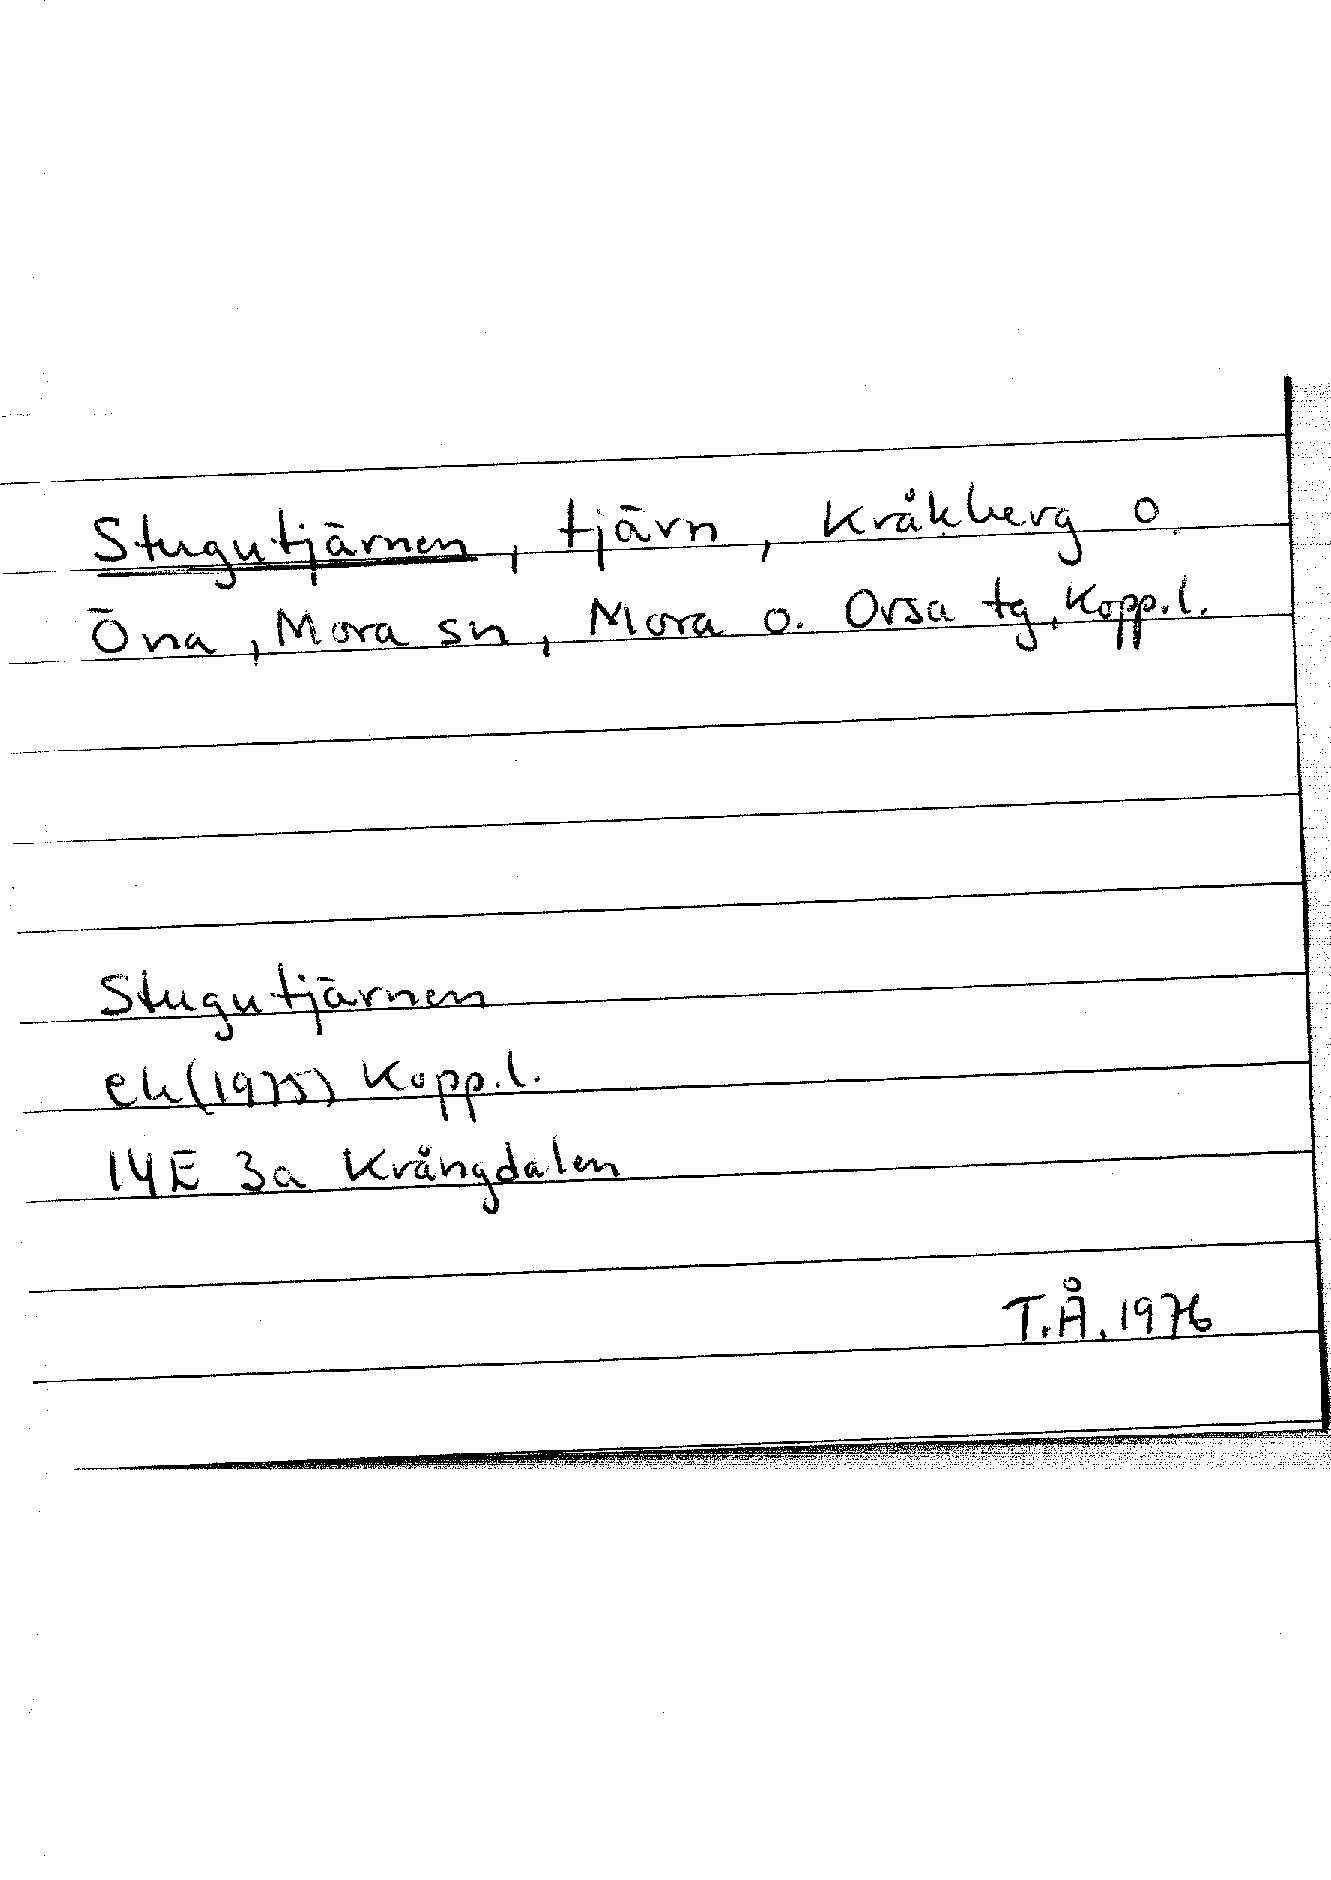 Stugutjärnen, tjärn, Kråkberg o.
Öna, Mora sn, Mora o. Orsa tg, Kopp.l.
Stugutjärnen
ek (1975) Kopp.l.
14E 3a Krångdalen
T.Å. 1976